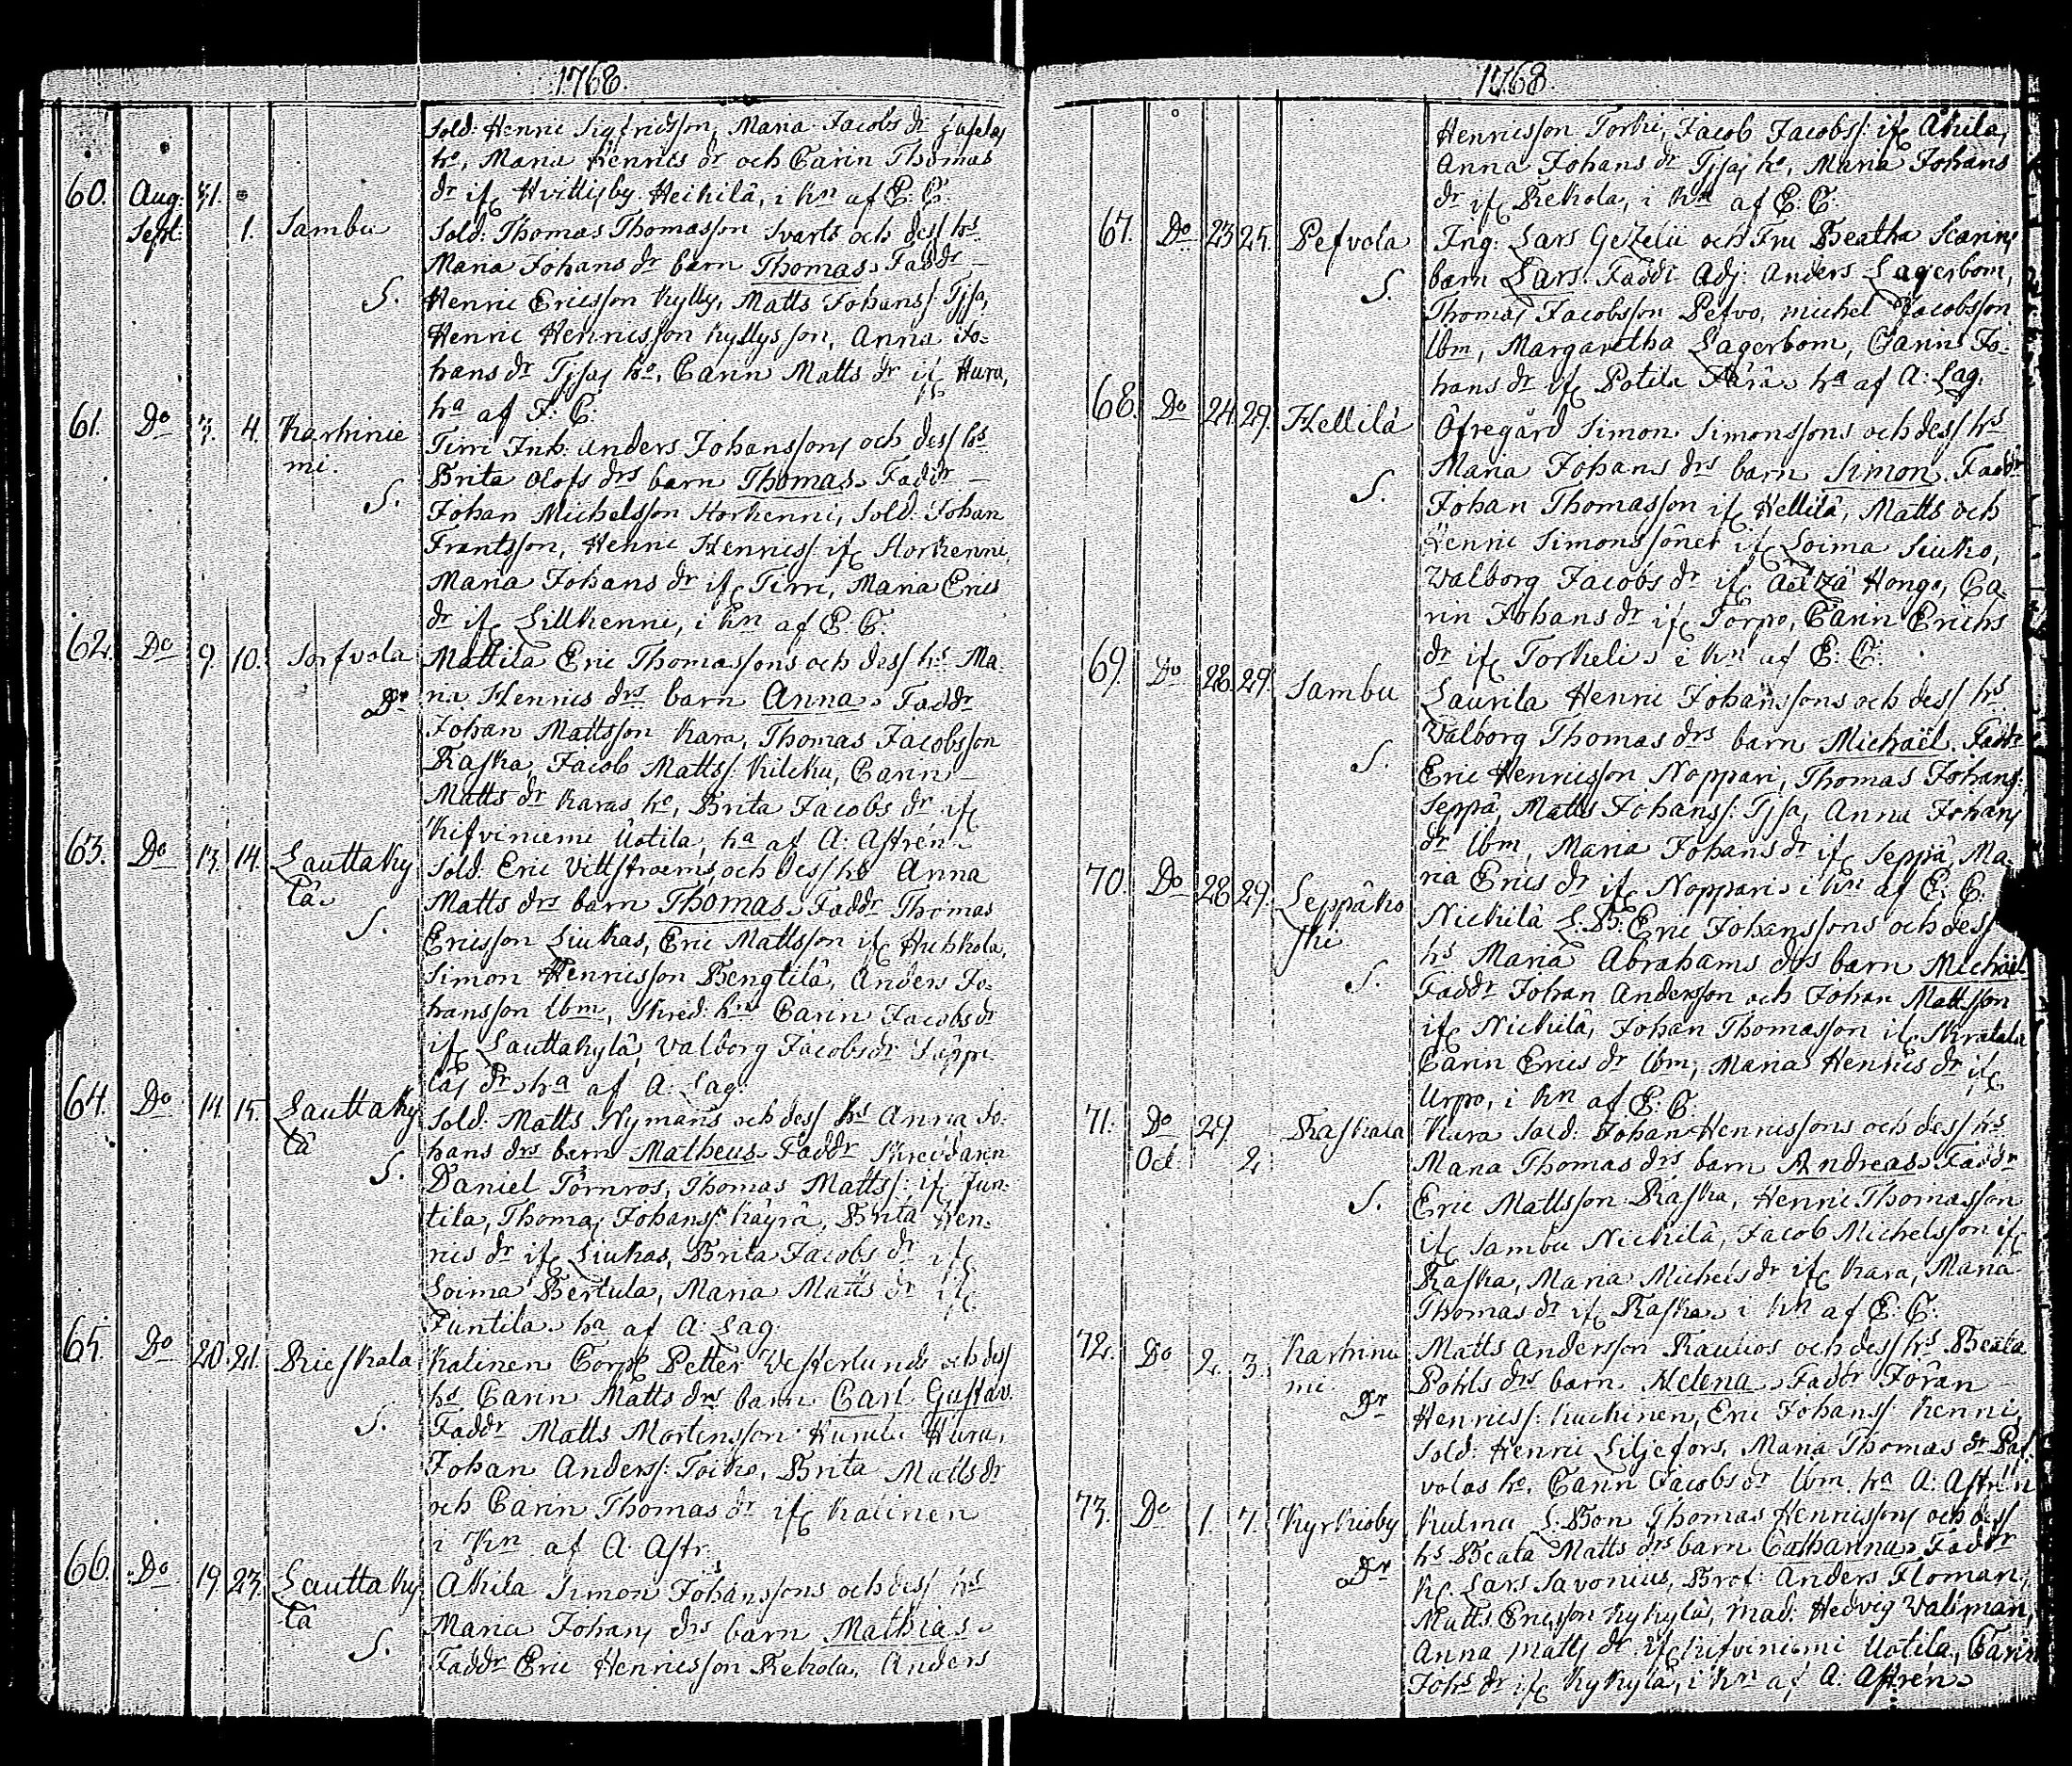 1768.
Sold: Henric Sigfridsson, Maria Jacobs dr
ho, Maria Henrics dr och Carin Thomas
60. Aug: 31.
dr if Hvittisby Heikilä, i kn af E. C.
Sept: 1. Sambu
Sold: Thomas Thomasson Svarts och dess hs
Maria Johans dr barn Thomas. Faddr
S.
Henric Ericsson Kylly, Matts Johanss: Tjsa,
Henric Henricsson Kyllys son, Anna Jo-
hans dr Tjsas ho, Carin Matts dr if Hura,
ha af F. C.
61. Do 3. 4. Karhinie
mi.
Tirri Inh: Anders Johanssons och dess hs
Brita Olofs drs barn Thomas. Faddr
S.
Johan Michelsson Horkenni, Sold: Johan
Frantsson, Henric Henricss: if Horkenni,
Maria Johans dr if Tirri, Maria Erics
dr if Lillkenni, i kn af E. C.
62. Do 9. 10. Sorfvola
Mattila Eric Thomassons och dess hs Ma-
Dr
ria Henrics drs barn Anna. Faddr
Johan Mattsson Kara, Thomas Jacobsson
Raska, Jacob Mattss: Kilcku, Carin
Matts dr Karas ho, Brita Jacobs dr if
Kifvinieme Uotila, ha af A: Astrén.
63. Do 13. 14. Lauttaky
lä.
Sold: Eric Vittstroems och dess hs Anna
Matts drs barn Thomas. Faddr Thomas
S.
Ericsson Liukas, Eric Mattsson if Huhkola,
Simon Henricsson Bengtilä, Anders Jo-
hansson lbm, Skred: hn Carin Jacobs dr
if Lauttakylä, Valborg Jacobs dr Säppi
läs dr, ha af A. Lag.
64. Do 14. 15. Lauttaky
lä
Sold: Matts Nymans och dess hs Anna Jo-
hans drs barn Matheus. Faddr Skreddaren
S.
Daniel Törnros, Thomas Mattss: if Jun-
tila, Thomas Johanss: Käyrä, Brita Hen-
rics dr if Liukas, Brita Jacobs dr if
Loima Bertula, Maria Matts dr if
Puntila. ha af A: Lag.
65. Do 20 21. Rieskala
Kalinen Corpl Petter Westerlunds och dess
hs Carin Matts drs barn Carl Gustav.
S.
Faddr Matts Mortensson Hura,
Johan Anderss: Toiko, Brita Matts dr
och Carin Thomas dr if Kalinen
i kn af A Astr.
66. Do 19 23. Lauttaky
lä
Akila Simon Johanssons och dess hs
Maria Johans drs barn Mathias.
S.
Faddr Eric Henricsson Rekola, Anders
1768.
Henricsson Torki, Jacob Jacobss: if Akila,
Anna Johans dr Tjsas ho, Maria Johans
dr if Rekola, i kn af E. C.
67. Do 23 25. Pesvola
Ing: Lars Gezelii och Fru Beatha Scarins
barn Lars. Faddr Adj: Anders Lagerbom,
S.
Thomas Jacobsson Pesvo, Michel Jacobsson
lbm, Margaretha Lagerbom, Carin Jo-
hans dr if Potila, ha af A: Lag.
68. Do 24 29. Hellilä
Öfregård Simon Simonssons och dess hs
Maria Johans drs barn Simon. Faddr
S.
Johan Thomasson if Hellilä, Matts och
Henric Simonssöner if Loima Siuko,
Valborg Jacobs dr if Hongo, Ca-
rin Johans dr if Torpo, Carin Erichs
dr if Torkeli. i kn af E. C.
69. Do 28 29. Sambu
Laurila Henric Johanssons och dess hs
Valborg Thomas drs barn Michaël. Faddr
S.
Eric Henricsson Noppari, Thomas Johanss:
Seppä, Matts Johanss: Tjsa, Anna Johans
dr lbm, Maria Johans dr if Seppä, Ma-
ria Erics dr if Noppari. i kn af E. C.
70. Do 28 29. Leppäko
ski
Nickilä L. B. Eric Johanssons och dess
hs Maria Abrahams drs barn Michaël
S.
Faddr Johan Andersson och Johan Mattsson
if Nickilä, Johan Thomasson if
Carin Erics dr lbm, Maria Henrics dr if
Urpo, i kn af E. C.
71. Do 29 Raskala
Oct: 2
Kara Sold: Johan Henricssons och dess hs
Maria Thomas drs barn Andreas. Faddr
S.
Eric Mattsson Raska, Henric Thomasson
if Sambu Nickilä, Jacob Michelsson if
Raska, Maria Michels dr if Kara, Maria
Thomas dr if Raska. i kn af E. C.
72. Do 2. 3. Karhinie
mi
Matts Andersson Raukos och dess hs Beata
Pohls drs barn Helena. Faddr Jöran
Dr
Henricss: Kuckinen, Eric Johanss: Kenni,
Sold: Henric Liljefors, Maria Thomas dr Päs
volas ho, Carin Jacobs dr lbm ha A: Astrén
73. Do 1. 7. Kyrkioby
Kulma L: Bon Thomas Henricssons och dess
hs Beata Matts drs barn Catharina. Faddr
Dr
Kl: Lars Savonius, Prof: Anders Floman,
Matts Ericsson Kykylä, Mad: Hedvig Valiman,
Anna Matts dr if Kifviniemi Uotila, Carin
Johs dr if Kykylä, i kn af A. Astrén.